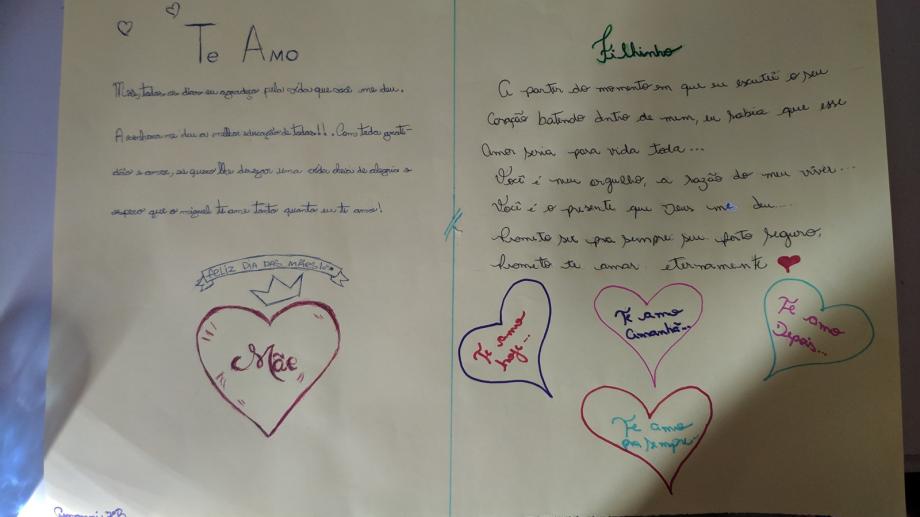 Te Amo
Mãe, todos os dias eu agradeço pela vida que você me deu.
A senhora me deu a melhor educação de todas!!. Com toda grati-
dão e amor, eu quero lhe desejar uma vida cheia de alegria e
espero que o miguel te ame tanto quanto eu te amo!
FELIZ DIA DAS MÃES!
Mãe
Filhinho
A partir do momento em que eu escutei o seu
Coração batendo dntro de mim, eu sabia que esse
Amor seria para vida toda...
Você é meu orgulho, a razão do meu viver...
Você é o presente que Deus me deu...
Prometo ser pra sempre seu porto seguro,
Prometo te amar eternamente
Te amo
hoje...
Te amo
Amanhã...
Te amo
Depois...
Te amo
pra sempre...